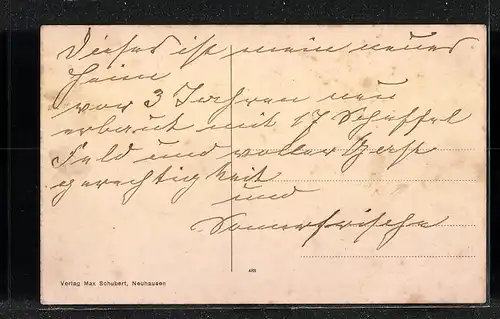 Dieses ist mein neues
Heim
vor 3 Jahren neu
erbaut mit 17 Scheffel
Feld und voller Gast
gerechtigkeit
und
Sommerfrische
Verlag Max Schubert, Neuhausen